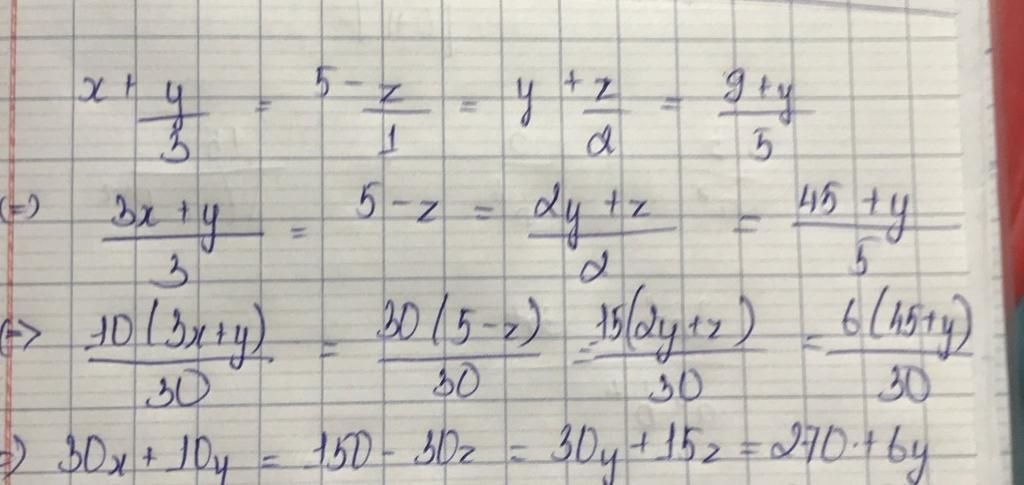 x + y/3 = 5 - z/1 = y + z/2 = (9+y)/5
(=) (3x + y)/3 = 5 - z = (2y + z)/2 = (45 + y)/5
(=> 10(3x+y)/30 = 30(5-z)/30 = 15(2y+z)/30 = 6(45+y)/30
=) 30x + 10y = 150 - 30z = 30y + 15z = 270 + 6y